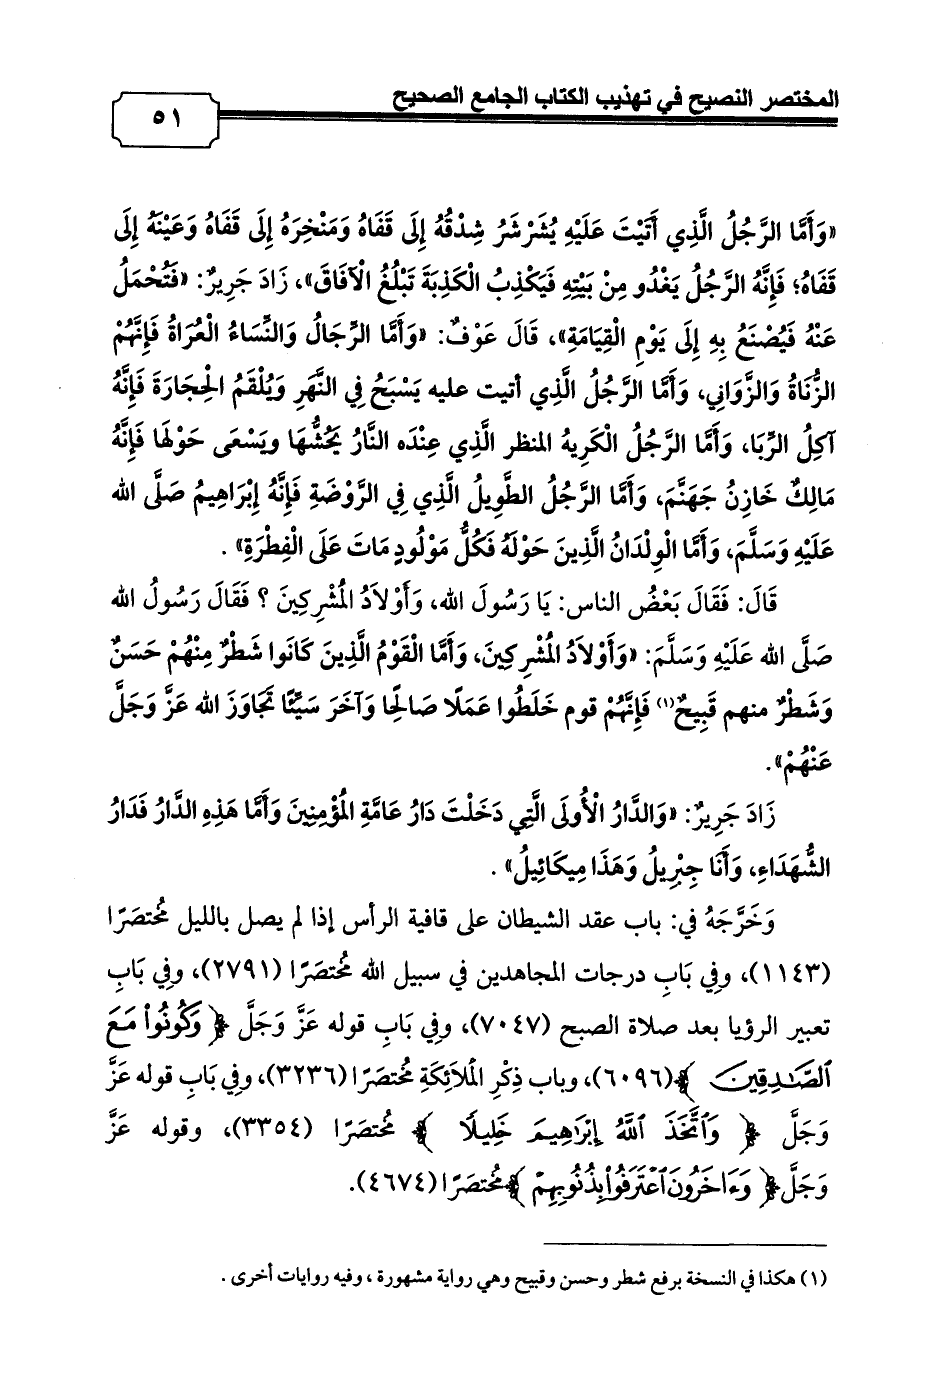 المختصر النصيح في تهذيب الكتاب الجامع الصحيح
٥١
«وَأَمَّا الرَّجُلُ الَّذِي أَتَيْتَ عَلَيْهِ يُشَرْشَرُ شِدْقُهُ إِلَى قَفَاهُ وَمَنْخِرَهُ إِلَى قَفَاهُ وَعَيْنَهُ إِلَى
قَفَاهُ؛ فَإِنَّهُ الرَّجُلُ يَغْدُو مِنْ بَيْتِهِ فَيَكْذِبُ الْكَذِبَةَ تَبْلُغُ الْآفَاقَ»، زَادَ جَرِيرٌ: «فَتُحْمَلُ
عَنْهُ فَيُصْنَعُ بِهِ إِلَى يَوْمِ الْقِيَامَةِ»، قَالَ عَوْفٌ: «وَأَمَّا الرِّجَالُ وَالنِّسَاءُ الْعُرَاةُ فَإِنَّهُمْ
الزُّنَاةُ وَالزَّوَانِي، وَأَمَّا الرَّجُلُ الَّذِي أتيت عليه يَسْبَحُ فِي النَّهَرِ وَيُلْقَمُ الْحِجَارَةَ فَإِنَّهُ
آكِلُ الرِّبَا، وَأَمَّا الرَّجُلُ الْكَرِيهُ المنظر الَّذِي عِنْدَه النَّارُ يَحُشُّهَا ويَسْعَى حَوْلَهَا فَإِنَّهُ
مَالِكٌ خَازِنُ جَهَنَّمَ، وَأَمَّا الرَّجُلُ الطَّوِيلُ الَّذِي فِي الرَّوْضَةِ فَإِنَّهُ إِبْرَاهِيمُ صَلَّى الله
عَلَيْهِ وَسَلَّمَ، وَأَمَّا الْوِلْدَانُ الَّذِينَ حَوْلَهُ فَكُلُّ مَوْلُودٍ مَاتَ عَلَى الْفِطْرَةِ» .
قَالَ: فَقَالَ بَعْضُ الناس: يَا رَسُولَ الله، وَأَوْلَادُ الْمُشْرِكِينَ ؟ فَقَالَ رَسُولُ الله
صَلَّى الله عَلَيْهِ وَسَلَّمَ: «وَأَوْلَادُ الْمُشْرِكِينَ، وَأَمَّا الْقَوْمُ الَّذِينَ كَانُوا شَطْرٌ مِنْهُمْ حَسَنٌ
وَشَطْرٌ منهم قَبِيحٌ(١) فَإِنَّهُمْ قوم خَلَطُوا عَمَلًا صَالِحًا وَآخَرَ سَيِّئًا تَجَاوَزَ الله عَزَّ وَجَلَّ
عَنْهُمْ».
زَادَ جَرِيرٌ: «وَالدَّارُ الْأُولَى الَّتِي دَخَلْتَ دَارُ عَامَّةِ الْمُؤْمِنِينَ وَأَمَّا هَذِهِ الدَّارُ فَدَارُ
الشُّهَدَاءِ، وَأَنَا جِبْرِيلُ وَهَذَا مِيكَائِيلُ» .
وَخَرَّجَهُ فِي: باب عقد الشيطان على قافية الرأس إذا لم يصل بالليل مُخْتَصَرًا
(١١٤٣)، وَفِي بَابِ درجات المجاهدين في سبيل الله مُخْتَصَرًا (٢٧٩١)، وفِي بَابِ
تعبير الرؤيا بعد صلاة الصبح (٧٠٤٧)، وفِي بَابِ قوله عَزَّ وَجَلَّ ﴿ وَكُونُواْ مَعَ
ٱلصَّـٰدِقِينَ ﴾(٦٠٩٦)، وباب ذِكْرِ الْمَلَائِكَةِ مُخْتَصَرًا (٣٢٣٦)، وفِي بَابِ قوله عَزَّ
وَجَلَّ ﴿ وَٱتَّخَذَ ٱللَّهُ إِبْرَٰهِيمَ خَلِيلًا ﴾ مُخْتَصَرًا (٣٣٥٤)، وقوله عَزَّ
وَجَلَّ ﴿ وَءَاخَرُونَ ٱعْتَرَفُواْ بِذُنُوبِهِمْ ﴾ مُخْتَصَرًا (٤٦٧٤).
(١) هكذا في النسخة برفع شطر وحسن وقبيح وهي رواية مشهورة ، وفيه روايات أخرى .